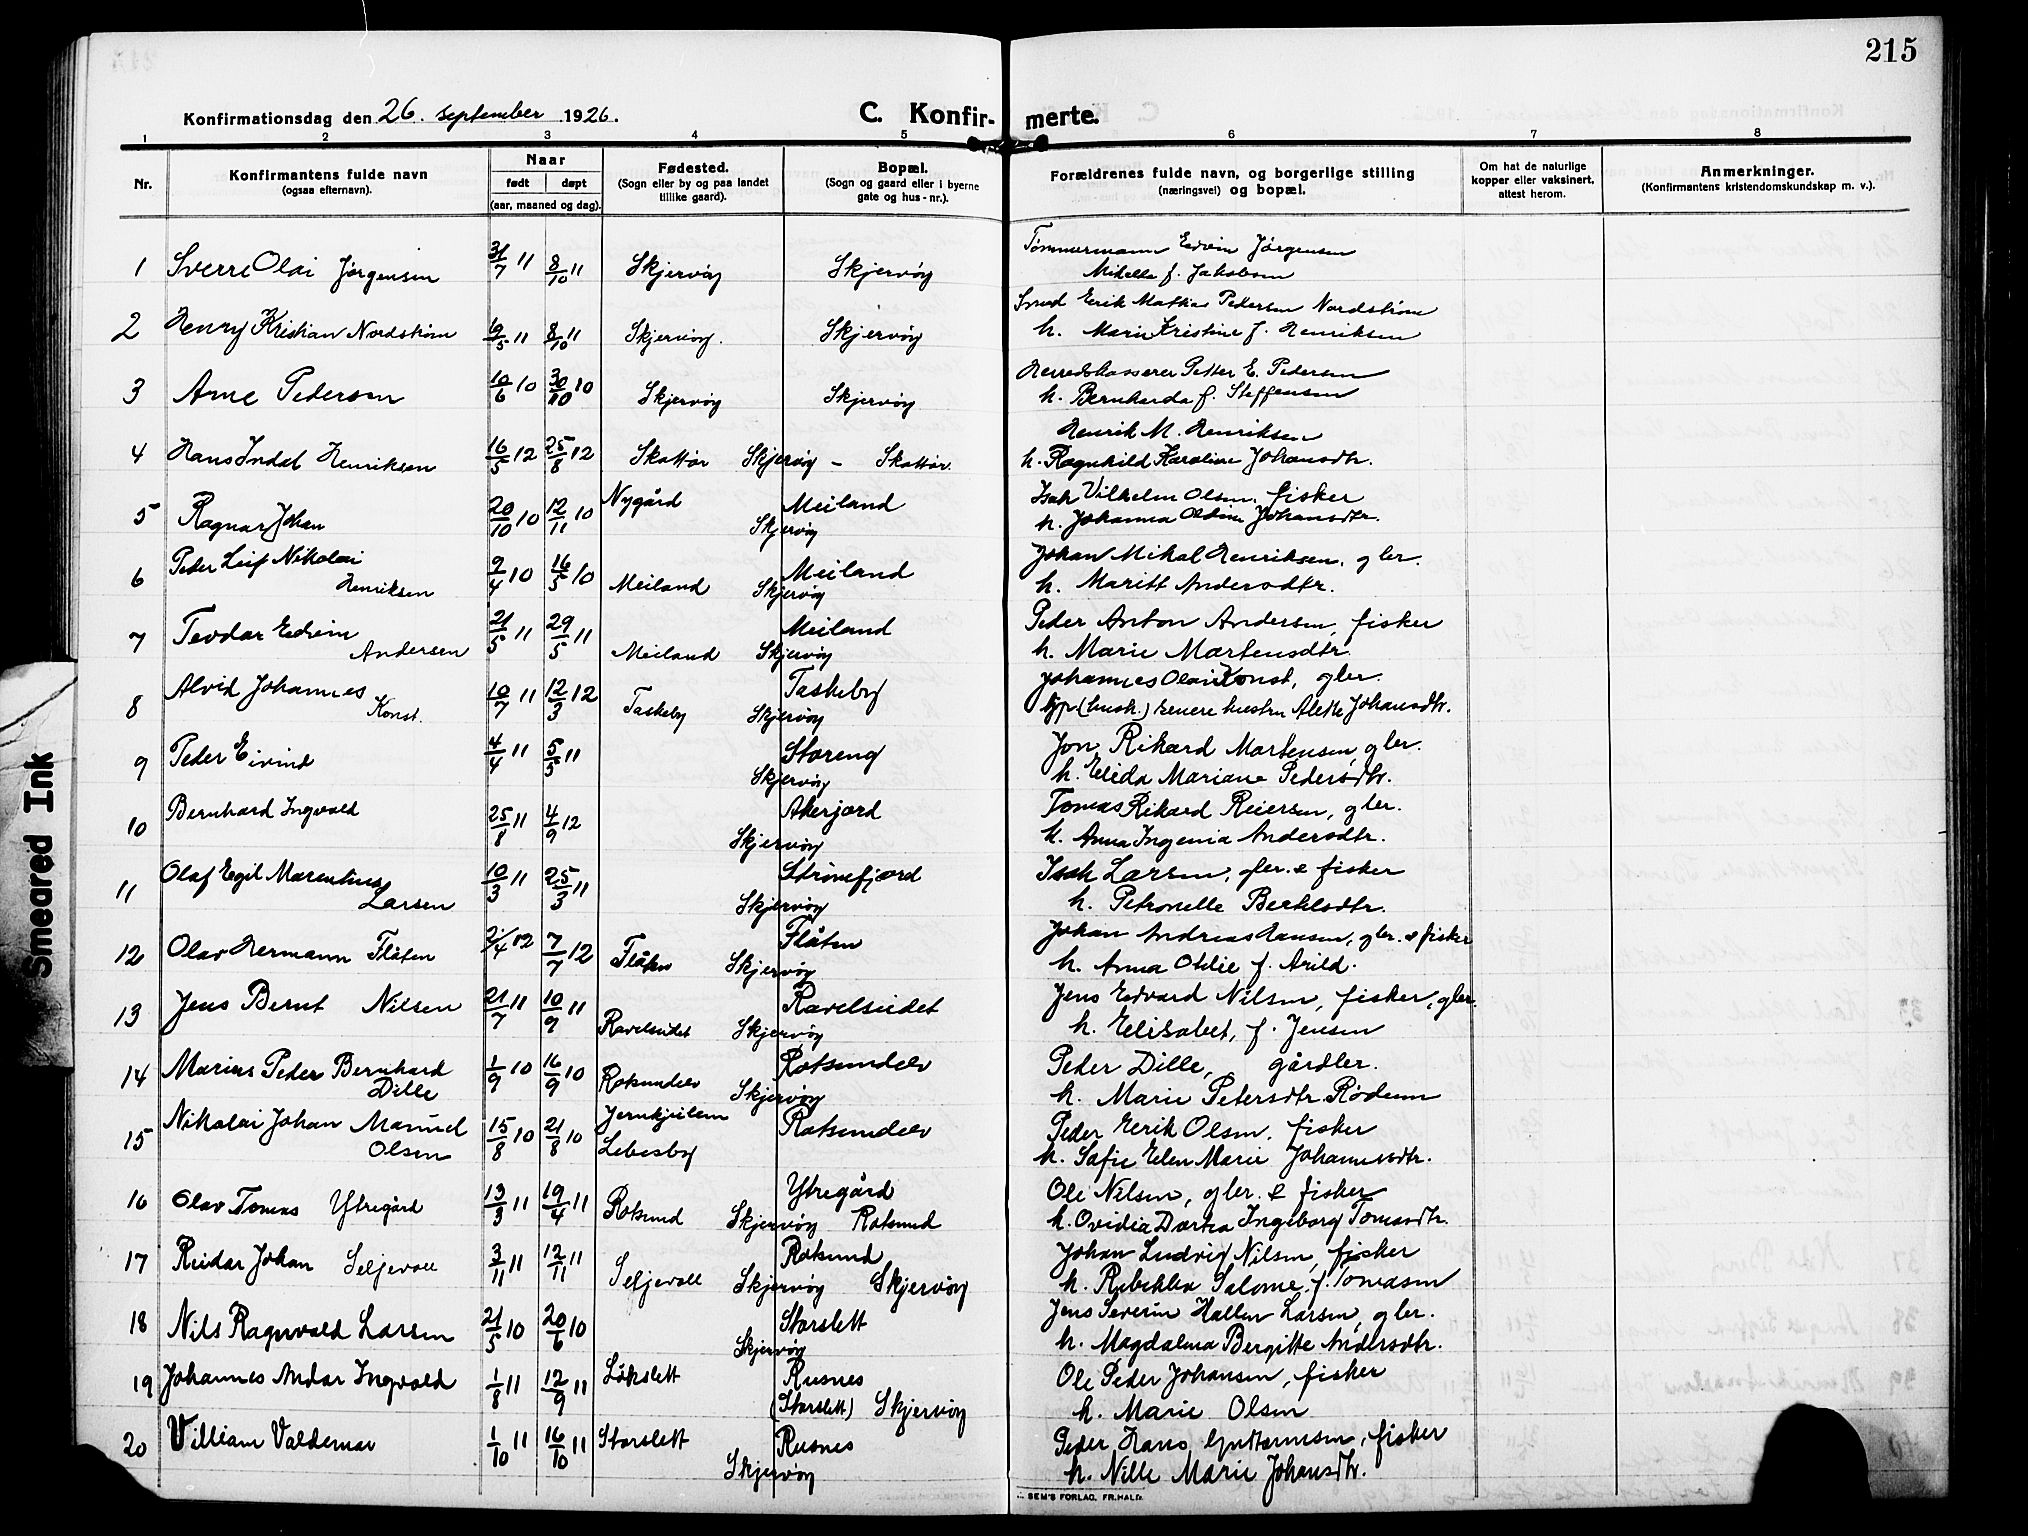 215
Konfirmationsdag den 26. september 1926.
C. Konfirmerte.
1 2 3 4 5 6 7 8
Nr.
Konfirmantens fulde navn
(ogsaa efternavn).
Naar
født døpt
(aar, maaned og dag).
Fødested.
(Sogn eller by og paa landet
tillike gaard).
Bopæl.
(Sogn og gaard eller i byerne
gate og hus-nr.).
Forældrenes fulde navn, og borgerlige stilling
(næringsvei) og bopæl.
Om hat de naturlige
kopper eller vaksinert,
attest herom.
Anmerkninger.
(Konfirmantens kristendomskundskap m. v.).
1 Sverre Olai Jørgensen 31/7 11 8/10 11 Skjervøy Skjervøy
Tømmermann Edvin Jørgensen
Mikella f. Jakobsen
2 Henry Kristian Nordstrøm 19/5 11 8/10 11 Skjervøy. Skjervøy
Smed Erik Mathias Pedersen Nordstrøm
h. Marie Kristine f. Henriksen
3 Arne Pedersen 10/6 10 30/10 10 Skjervøy Skjervøy
Herredskasserer Petter E. Pedersen
h. Bernharda f. Steffensen
4 Hans Indal Henriksen 16/5 12 25/8 12 Skattør Skjervøy - Skattør.
Henrik M. Henriksen
h. Ragnhild Karoline Johansdtr.
5 Ragnar Johan 20/10 10 12/11 10 Nygård Meiland
Skjervøy
Isak Vilhelm Olsen, fisker
h. Johanna Oldine Johansdtr.
6 Peder Leif Nikolai
Henriksen 9/4 10 16/5 10 Meiland Meiland
Skjervøy
Johan Mikal Henriksen, gbr.
h. Maritt Andersdtr.
7 Teodor Edvin
Andersen 21/5 11 29/5 11 Meiland Meiland
Skjervøy
Peder Anton Andersen, fisker
h. Marie Martensdtr.
8 Alvid Johannes
Konst. 10/7 11 12/3 12 Taskeby Taskeby
Skjervøy
Johannes Olai Konst, gbr.
(hush.) senere hustru Alette Johansdtr.
9 Peder Eivind 4/4 11 5/5 11 Storeng
Skjervøy
Jon Rikard Martensen, gbr.
h. Elida Mariane Pedersdtr.
10 Bernhard Ingvald 25/8 11 4/9 12 Akerjord
Skjervøy
Tomas Rikard Reiersen, gbr.
h. Anna Ingenia Andersdtr.
11 Olaf Egil Marentius
Larsen 10/3 11 25/3 11 Strømfjord
Skjervøy
Isak Larsen, gbr. & fisker
h. Petronelle Berthsdtr.
12 Olav Hermann Flåten 2/4 12 7/7 12 Flåten Flåten
Skjervøy
Johan Andreas Hansen, gbr. & fisker
h. Anna Otelie f. Arild.
13 Jens Bernt Nilsen 21/7 11 10/9 11 Ravelseidet Ravelseidet
Skjervøy
Jens Edvard Nilsen, fisker, gbr.
h. Elisabet, f. Jensen
14 Marius Peder Bernhard
Dille 1/9 10 16/9 10 Rotsundelv Rotsundelv
Skjervøy
Peder Dille, gårdbr.
h. Marie Petersdtr. Rødum
15 Nikolai Johan Manuel
Olsen 15/8 10 21/8 10 Jernkjeilen
Lebesby Rotsundelv
Peder Erik Olsen, fisker
h. Sofie Elen Marie Johannesdtr.
16 Olav Tomas Ytregård 13/3 11 19/4 11 Rotsund Ytregård
Skjervøy Rotsund
Ole Nilsen, gbr. & fisker
h. Ovidia Dortea Ingeborg Tomasdtr.
17 Reidar Johan Seljevoll 3/11 11 12/11 11 Seljevoll Rotsund
Skjervøy Skjervøy
Johan Ludvig Nilsen, fisker
h. Rebekka Salome, f. Tomasen
18 Nils Ragnvald Larsen 21/5 10 20/6 10 Storslett
Skjervøy
Jens Severin Hallen Larsen, gbr.
h. Magdalena Bergitte Andersdtr.
19 Johannes Andor Ingvald 1/8 11 12/9 11 Løkslett Rusnes
(Storslett) Skjervøy
Ole Peder Johansen, fisker
h. Marie Olsen
20 Villiam Valdemar 1/10 11 16/10 11 Storslett Rusnes
Skjervøy
Peder Hans Guttormsen, fisker
h. Nille Marie Johansdtr.
SEM'S FORLAG, FR.HALD.
Smeared Ink